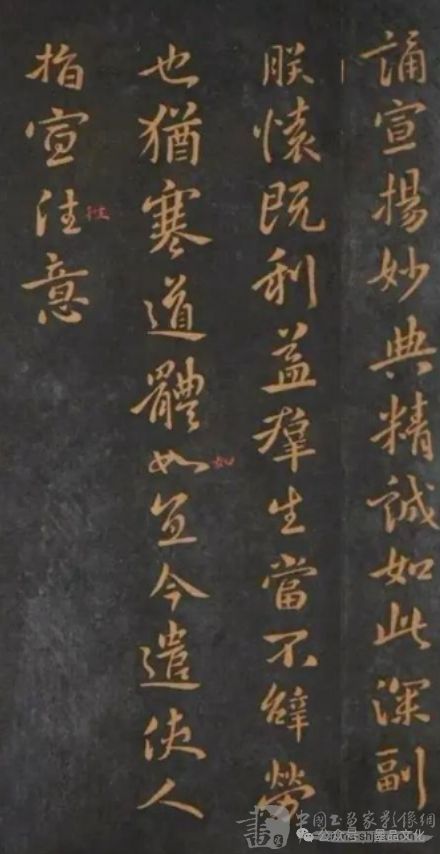 誦宣揚妙典精誠如此深副
朕懷既利益羣生當不辭勞
也猶寒道體如宜今遣使人
如
指宣往意
往
中國書畫家影像網
公众号